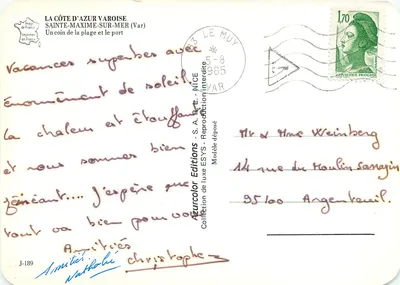 LA CÔTE D'AZUR VAROISE
SAINTE-MAXIME-SUR-MER (Var)
Un coin de la plage et le port
Vacances superbes avec
Enormément de soleil
la chaleur est étouffante
et nous sommes bien
J'espère que
tout va bien pour vous
Amitiés
Christophe
Amitiés
Nathalie
J-189
Azurcolor Editions - S.A.E.L. - NICE
Collection de luxe ESYS - Reproduction interdite
Modèle déposé
LE MUY
1985
VAR
1,70
REPUBLIQUE FRANÇAISE
Mr & Mme Weinberg
14 rue du Moulin Sarrazin
95100 Argenteuil